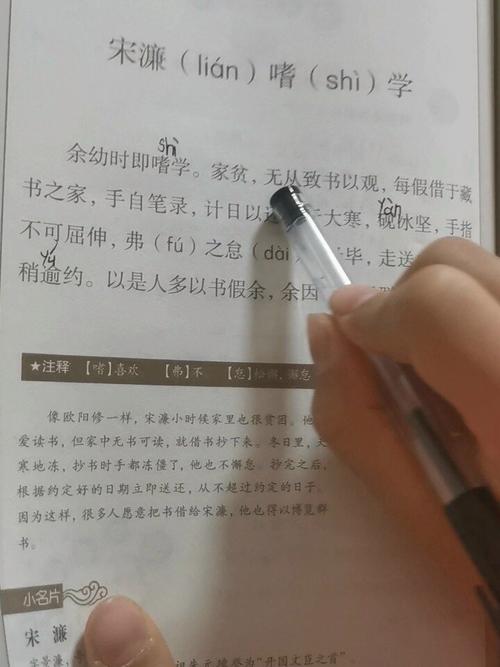 宋濂（lián）嗜（shì）学
shì
余幼时即嗜学。家贫，无从致书以观，每假借于藏
yàn
书之家，手自笔录，计日以 大寒，砚冰坚，手指
不可屈伸，弗（fú）之怠（dài 毕，走送
yú
稍逾约。以是人多以书假余，余因
★注释 【嗜】喜欢 【弗】不 【怠】松懈，懈怠
像欧阳修一样，宋濂小时候家里也很贫困。他
爱读书，但家中无书可读，就借书抄下来。冬日里，天
寒地冻，抄书时手都冻僵了，他也不懈怠。抄完之后，
根据约定好的日期立即送还，从不超过约定的日子。
因为这样，很多人愿意把书借给宋濂，他也得以博览群
书。
小名片
宋 濂
字景濂， 朱元璋誉为“开国文臣之首”。